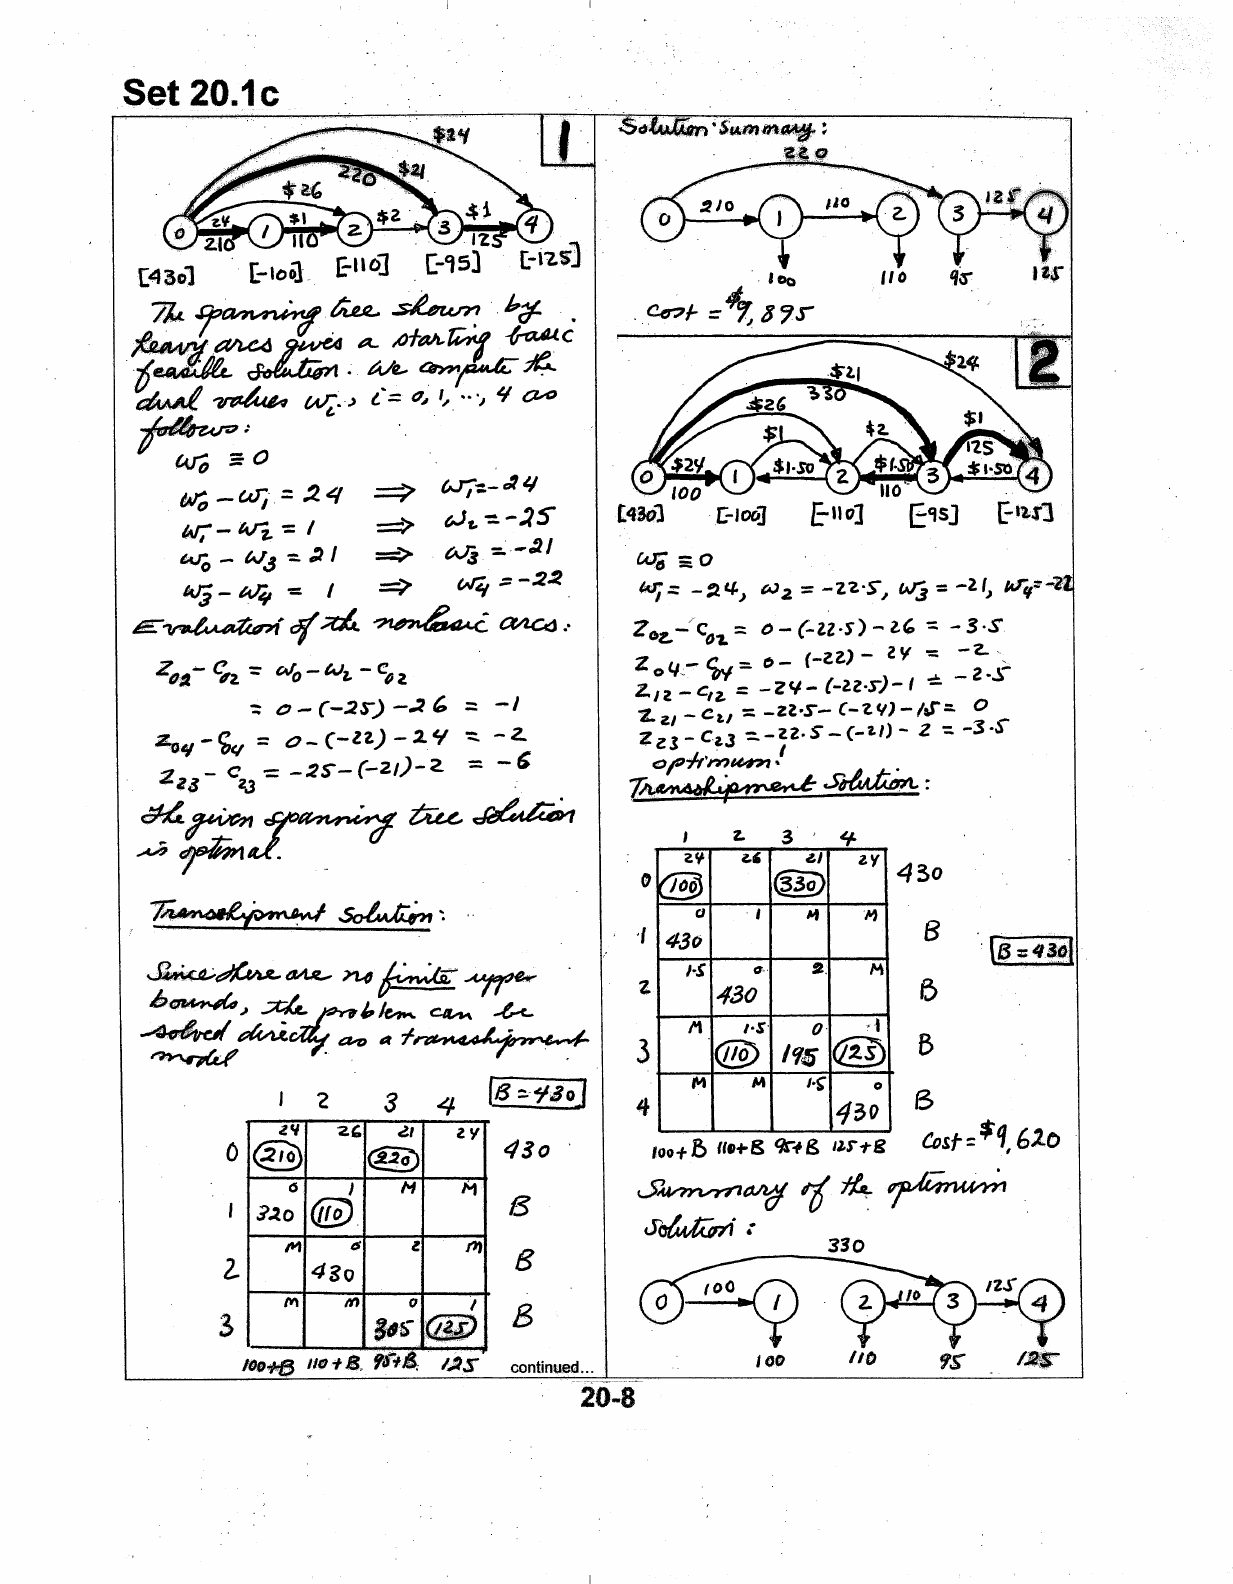 Set 20.1c
1
$24
$21
220
$26
24 $1 $2 $1
0 1 2 3 4
210 110 125
[430] [-100] [-110] [-95] [-125]
The spanning tree shown by
heavy arcs gives a starting basic
feasible solution. We compute the
dual values wi, i = 0, 1, ..., 4 as
follows:
w0 ≡ 0
w0 - w1 = 24 ⟹ w1 = -24
w1 - w2 = 1 ⟹ w2 = -25
w0 - w3 = 21 ⟹ w3 = -21
w3 - w4 = 1 ⟹ w4 = -22
Evaluation of the nonbasic arcs:
Z02 - C02 = w0 - w2 - C02
= 0 - (-25) - 26 = -1
Z04 - C04 = 0 - (-22) - 24 = -2
Z23 - C23 = -25 - (-21) - 2 = -6
The given spanning tree solution
is optimal.
Transshipment Solution:
Since there are no finite upper
bounds, the problem can be
solved directly as a transshipment
model.
B = 430
1 2 3 4
24 26 21 24
0 210 220 430
0 1 M M
1 320 110 B
M 0 2 M
2 430 B
M M 0 1
3 305 125 B
100+B 110+B 95+B 125
continued...
Solution Summary:
220
210 110 125
0 1 2 3 4
100 110 95 125
Cost = $9,895
2
$24
$21
330
$26
$1 $2 $1
125
$24 $1.50 $1.50 $1.50
0 1 2 3 4
100 110
[430] [-100] [-110] [-95] [-125]
w0 ≡ 0
w1 = -24, w2 = -22.5, w3 = -21, w4 = -22
Z02 - C02 = 0 - (-22.5) - 26 = -3.5
Z04 - C04 = 0 - (-22) - 24 = -2
Z12 - C12 = -24 - (-22.5) - 1 = -2.5
Z21 - C21 = -22.5 - (-24) - 1.5 = 0
Z23 - C23 = -22.5 - (-21) - 2 = -3.5
optimum!
Transshipment Solution:
1 2 3 4
24 26 21 24
0 100 330 430
0 1 M M
1 430 B
B = 430
1.5 0 2 M
2 430 B
M 1.5 0 1
3 110 195 125 B
M M 1.5 0
4 430 B
100+B 110+B 95+B 125+B Cost = $9,620
Summary of the optimum
Solution:
330
100 110 125
0 1 2 3 4
100 110 95 125
20-8